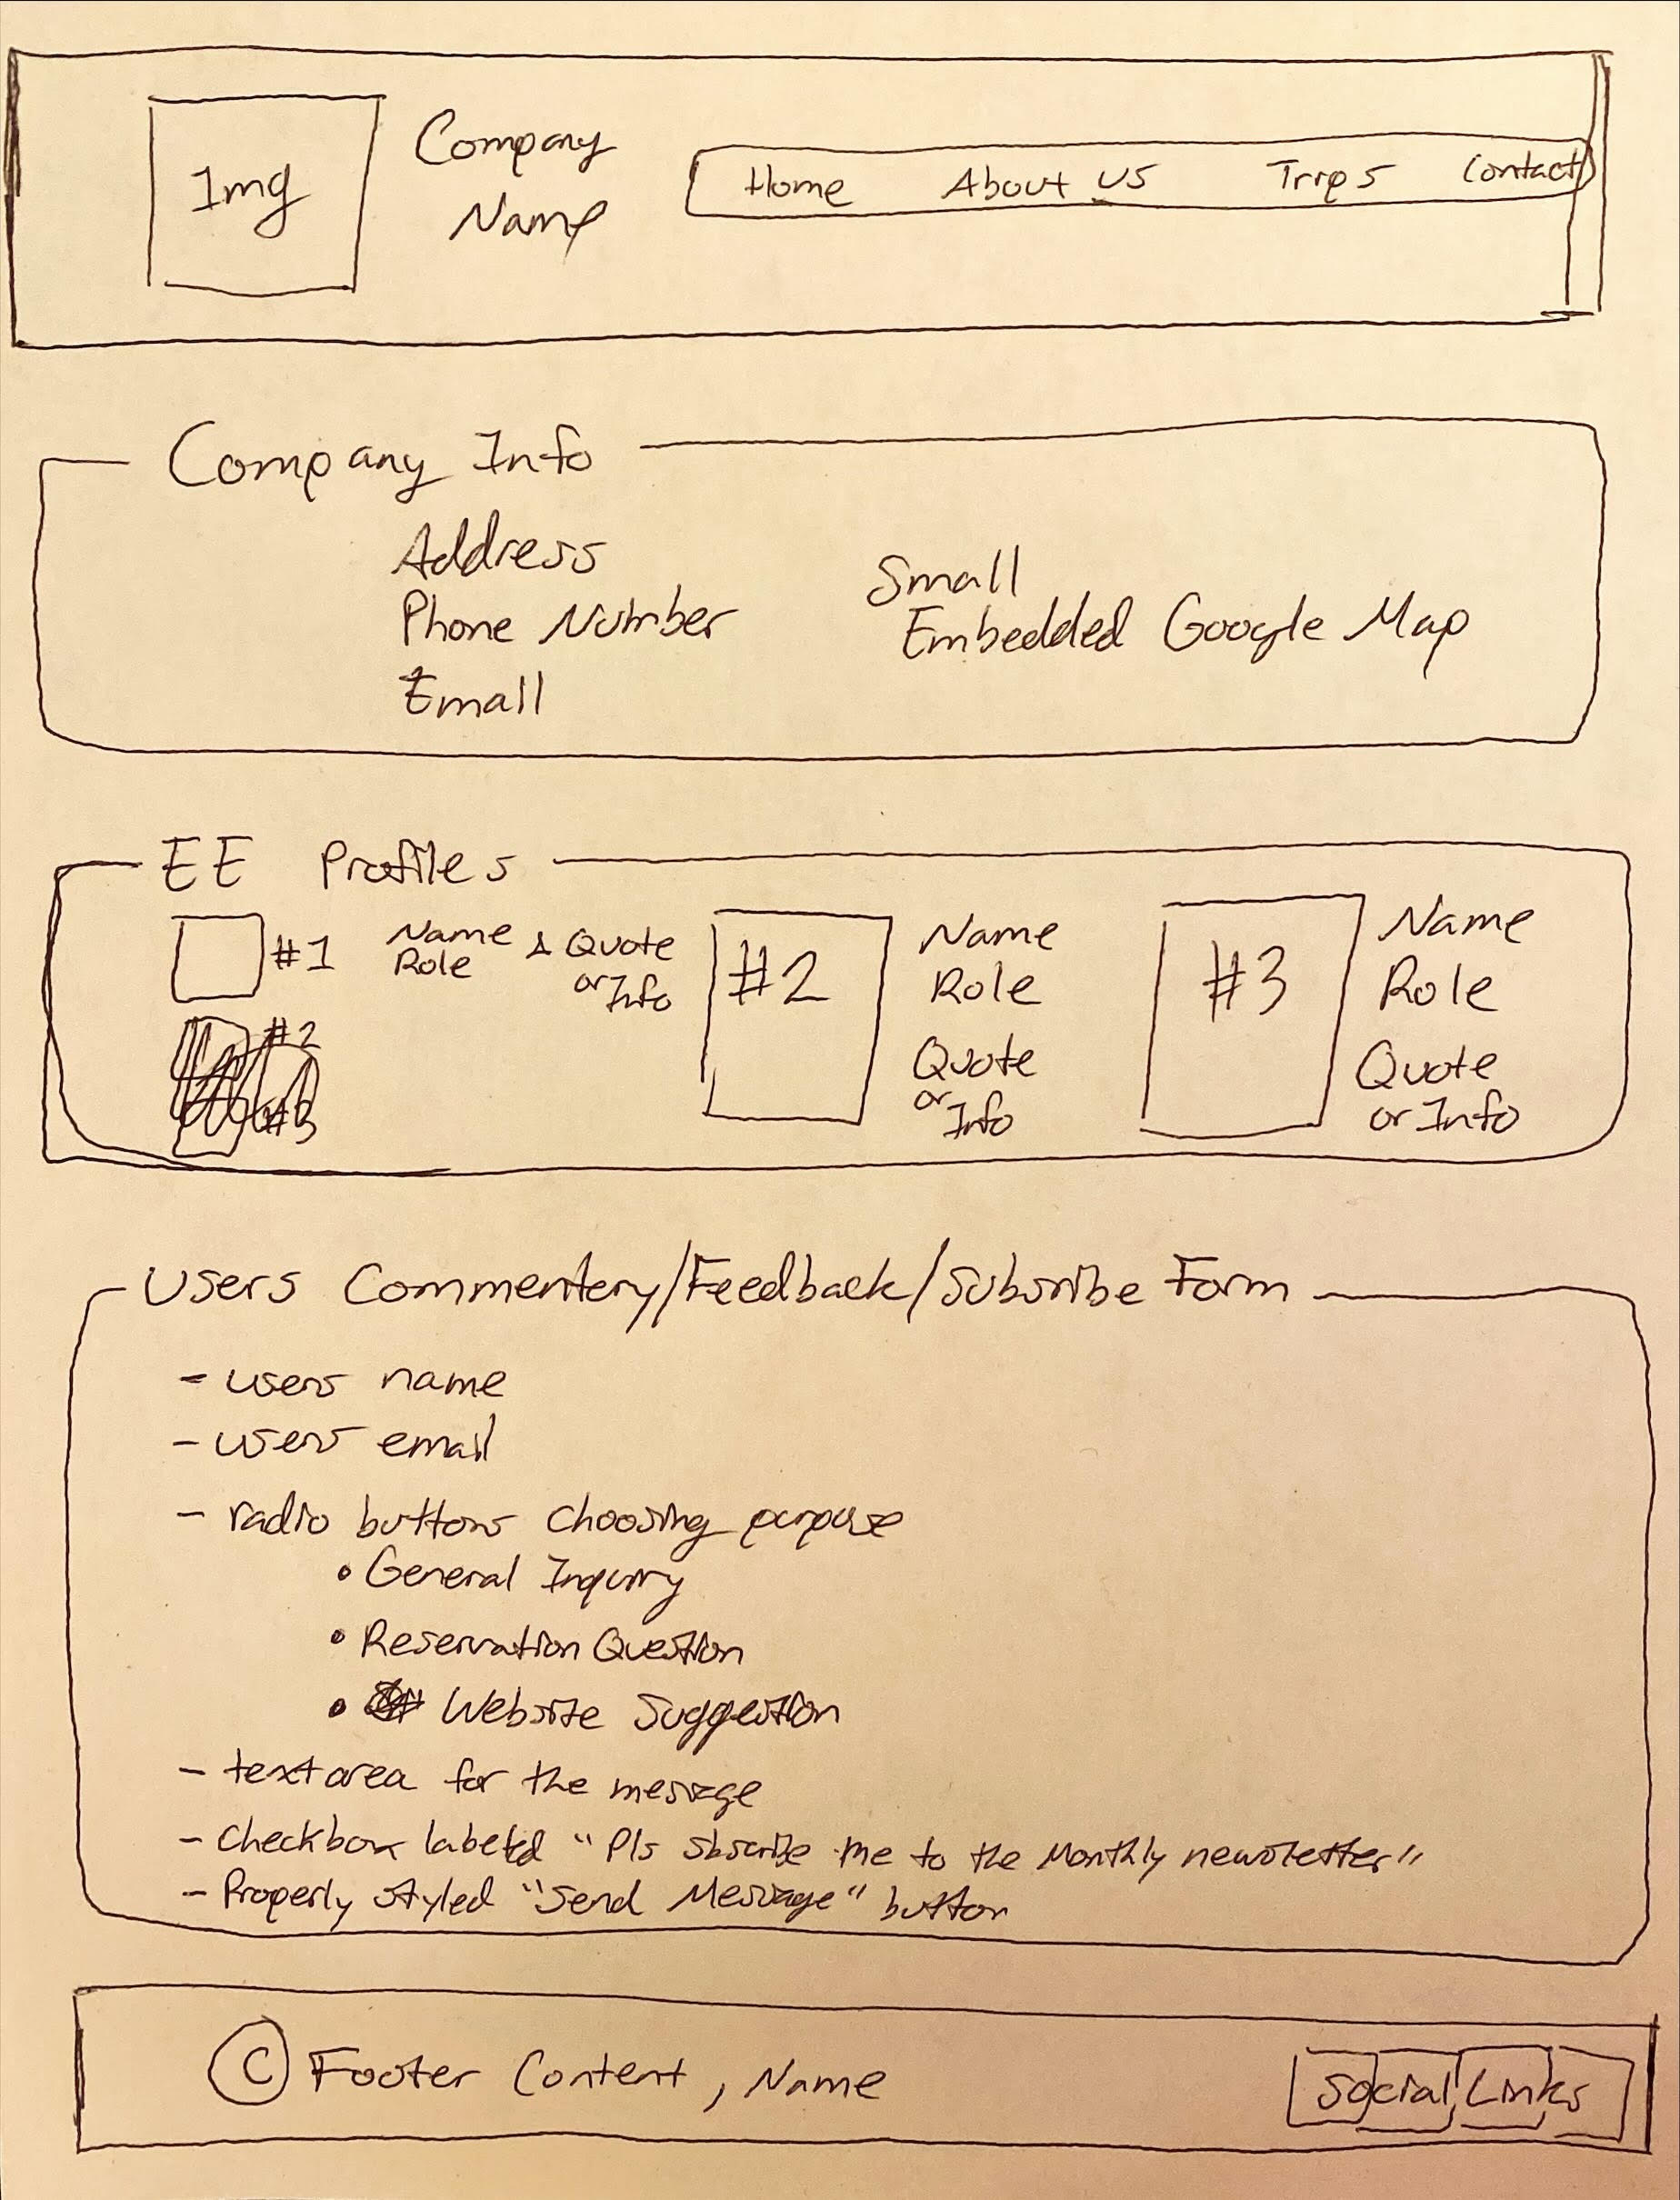 Img
Company
Name
Home About us Trips Contact
Company Info
Address
Phone Number
Email
Small
Embedded Google Map
EE Profiles
#1
Name
Role
& Quote
or Info
#2
Name
Role
Quote
or
Info
#3
Name
Role
Quote
or Info
#2
#3
Users Commentery/Feedback/Subsribe Form
- users name
- users email
- radio buttons choosing purpose
• General Inquiry
• Reservation Question
• Website Suggestion
- textarea for the message
- Checkbox labeled "Pls sbscribe me to the Monthly newsletter"
- Properly styled "Send Message" button
© Footer Content, Name
Social Links